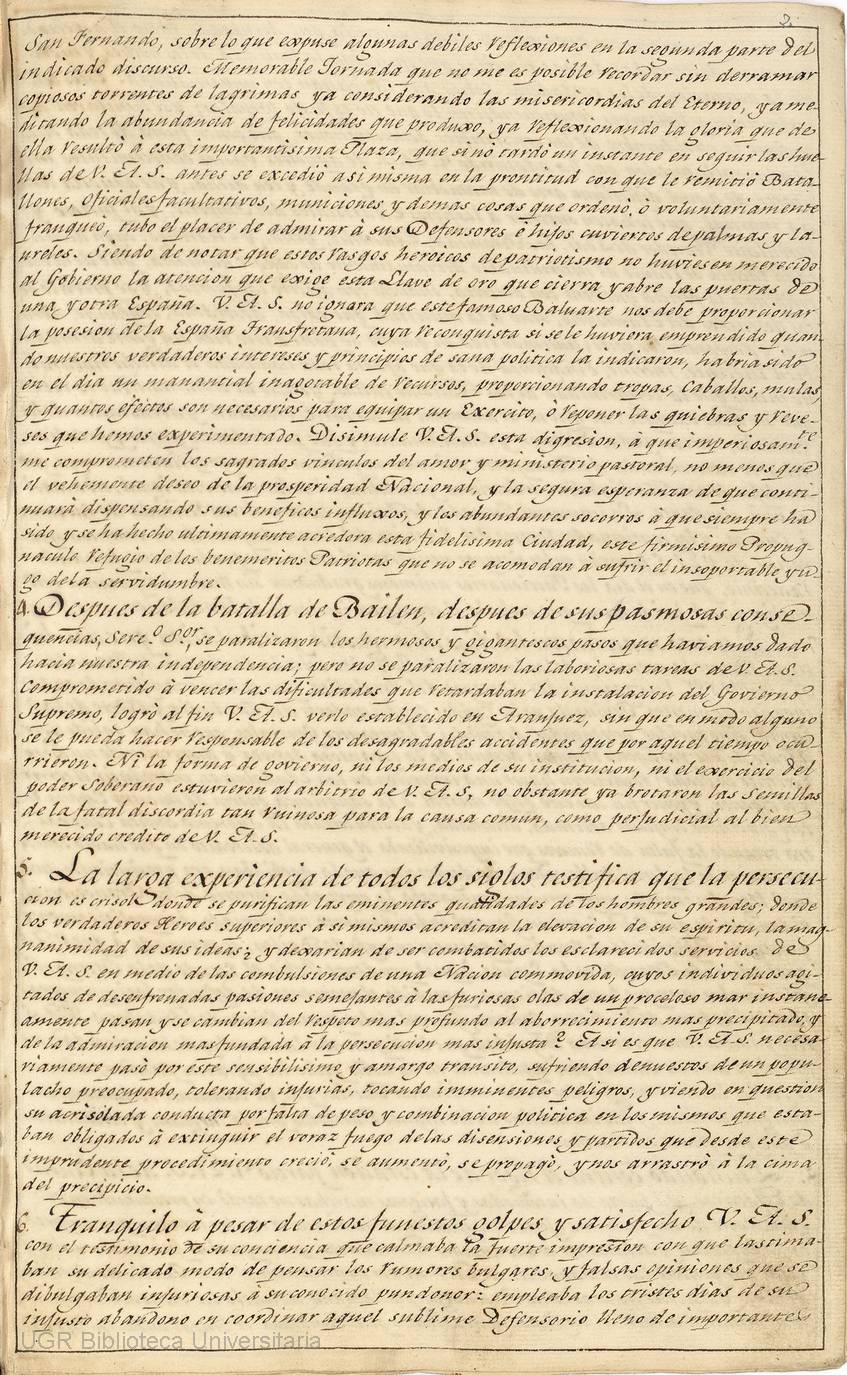 2.
San Fernando, sobre lo que expuse algunas debiles reflexiones en la segunda parte del
indicado discurso. Memorable Jornada que no me es posible recordar sin derramar
copiosos torrentes de lagrimas ya considerando las misericordias del Eterno, ya me-
ditando la abundancia de felicidades que produxo, ya reflexionando la gloria que de
ella resultò à esta importantisima Plaza, que si nó tardò un instante en seguir las hue-
llas de V. A. S. antes se excediò asi misma en la prontitud con que le remitiò Bata-
llones, Oficiales facultativos, municiones y demas cosas que ordenò, ò voluntariamente
franqueò, tubo el placer de admirar à sus Defensores è hijos cuviertos de palmas y la-
ureles. Siendo de notar que estos rasgos heròicos de patriotismo no huviesen merecido
al Gobierno la atencion que exige esta Llave de oro que cierra y abre las puertas de
una y otra España. V. A. S. no ignora que este famoso Baluarte nos debe proporcionar
la posesion de la España Transfretana, cuya reconquista si se le huviera emprendido quan-
do nuestros verdaderos intereses y principios de sana politica la indicaron, habria sido
en el dia un manantial inagotable de recursos, proporcionando tropas, Caballos, mulas,
y quantos efectos son necesarios para equipar un Exercito, ò reponer las quiebras y reve-
ses que hemos experimentado. Disimule V. A. S. esta digresion, à que imperiosam.te
me comprometen los sagrados vinculos del amor y ministerio pastoral, no menos que
el vehemente deseo de la prosperidad Nacional, y la segura esperanza de que conti-
nuarà dispensando sus beneficos influxos, y los abundantes socorros à que siempre ha
sido y se ha hecho ultimamente acredora esta fidelisima Ciudad, este firmisimo Propug-
naculo refugio de los benemeritos Patriotas que no se acomodan à sufrir el insoportable yu-
go de la servidumbre.
4. Despues de la batalla de Bailen, despues de sus pasmosas conse-
quencias, Sere.o S.or, se paralizaron los hermosos y gigantescos pasos que haviamos dado
hacia nuestra independencia; pero no se paralizaron las laboriosas tareas de V. A. S.
Comprometido à vencer las dificultades que retardaban la instalacion del Govierno
Supremo, logrò al fin V. A. S. verlo establecido en Aranjuez, sin que en modo alguno
se le pueda hacer responsable de los desagradables accidentes que por aquel tiempo ocu-
rrieron. Ni la forma de govierno, ni los medios de su institucion, ni el exercicio del
poder Soberano estuvieron al arbitrio de V. A. S, no obstante ya brotaron las Semillas
de la fatal discordia tan ruinosa para la causa comun, como perjudicial al bien
merecido credito de V. A. S.
5. La larga experiencia de todos los siglos testifica que la persecu-
cion es crisol donde se purifican las eminentes qualidades de los hombres grandes; donde
los verdaderos Heroes superiores à si mismos acreditan la elevacion de su espiritu, la mag-
nanimidad de sus ideas; y dexarian de ser combatidos los esclarecidos servicios de
V. A. S. en medio de las combulsiones de una Nacion commovida, cuyos individuos agi-
tados de desenfrenadas pasiones semejantes à las furiosas olas de un proceloso mar instane-
amente pasan y se cambian del respeto mas profundo al aborrecimiento mas precipitado, y
de la admiracion mas fundada à la persecucion mas injusta? Asi es que V. A. S. necesa-
riamente pasò por este sensibilisimo y amargo transito, sufriendo denuestos de un popu-
lacho preocupado, tolerando injurias, tocando imminentes peligros, y viendo en question
su acrisolada conducta por falta de peso y combinacion politica en los mismos que esta-
ban obligados à extinguir el voraz fuego de las disensiones y partidos que desde este
imprudente procedimiento creciò, se aumentò, se propagò, y nos arrastrò à la cima
del precipicio.
6. Tranquilo à pesar de estos funestos golpes, y satisfecho V. A. S.
con el testimonio de su conciencia que calmaba la fuerte impresion con que lastima-
ban su delicado modo de pensar los rumores bulgares, y falsas opiniones que se
dibulgaban injuriosas à su conocido pundonor: empleaba los tristes dias de su
injusto abandono en coordinar aquel sublime Defensorio lleno de importantes
UGR Biblioteca Universitaria